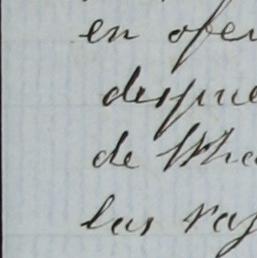 en ofer
despue
de Wha
las raf